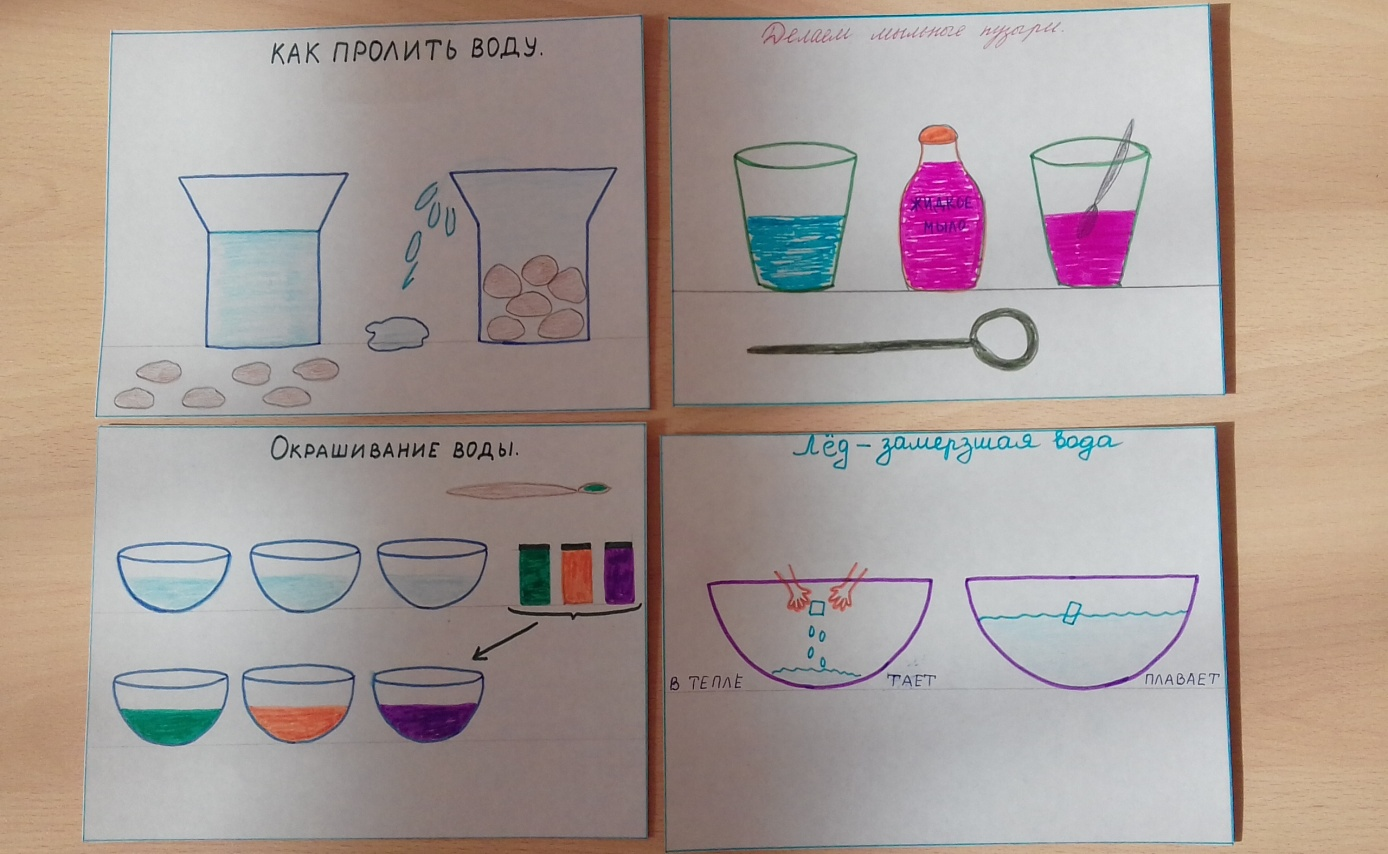 КАК ПРОЛИТЬ ВОДУ.
Делаем мыльные пузыри.
ЖИДКОЕ
МЫЛО
ОКРАШИВАНИЕ ВОДЫ.
Лёд – замерзшая вода
В ТЕПЛЕ ТАЕТ
ПЛАВАЕТ